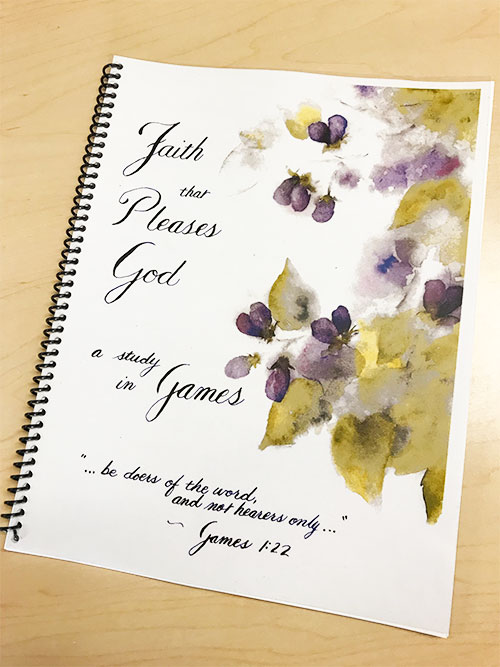 Faith
that
Pleases
God
a study
in James
"... be doers of the word,
and not hearers only..."
~ James 1:22